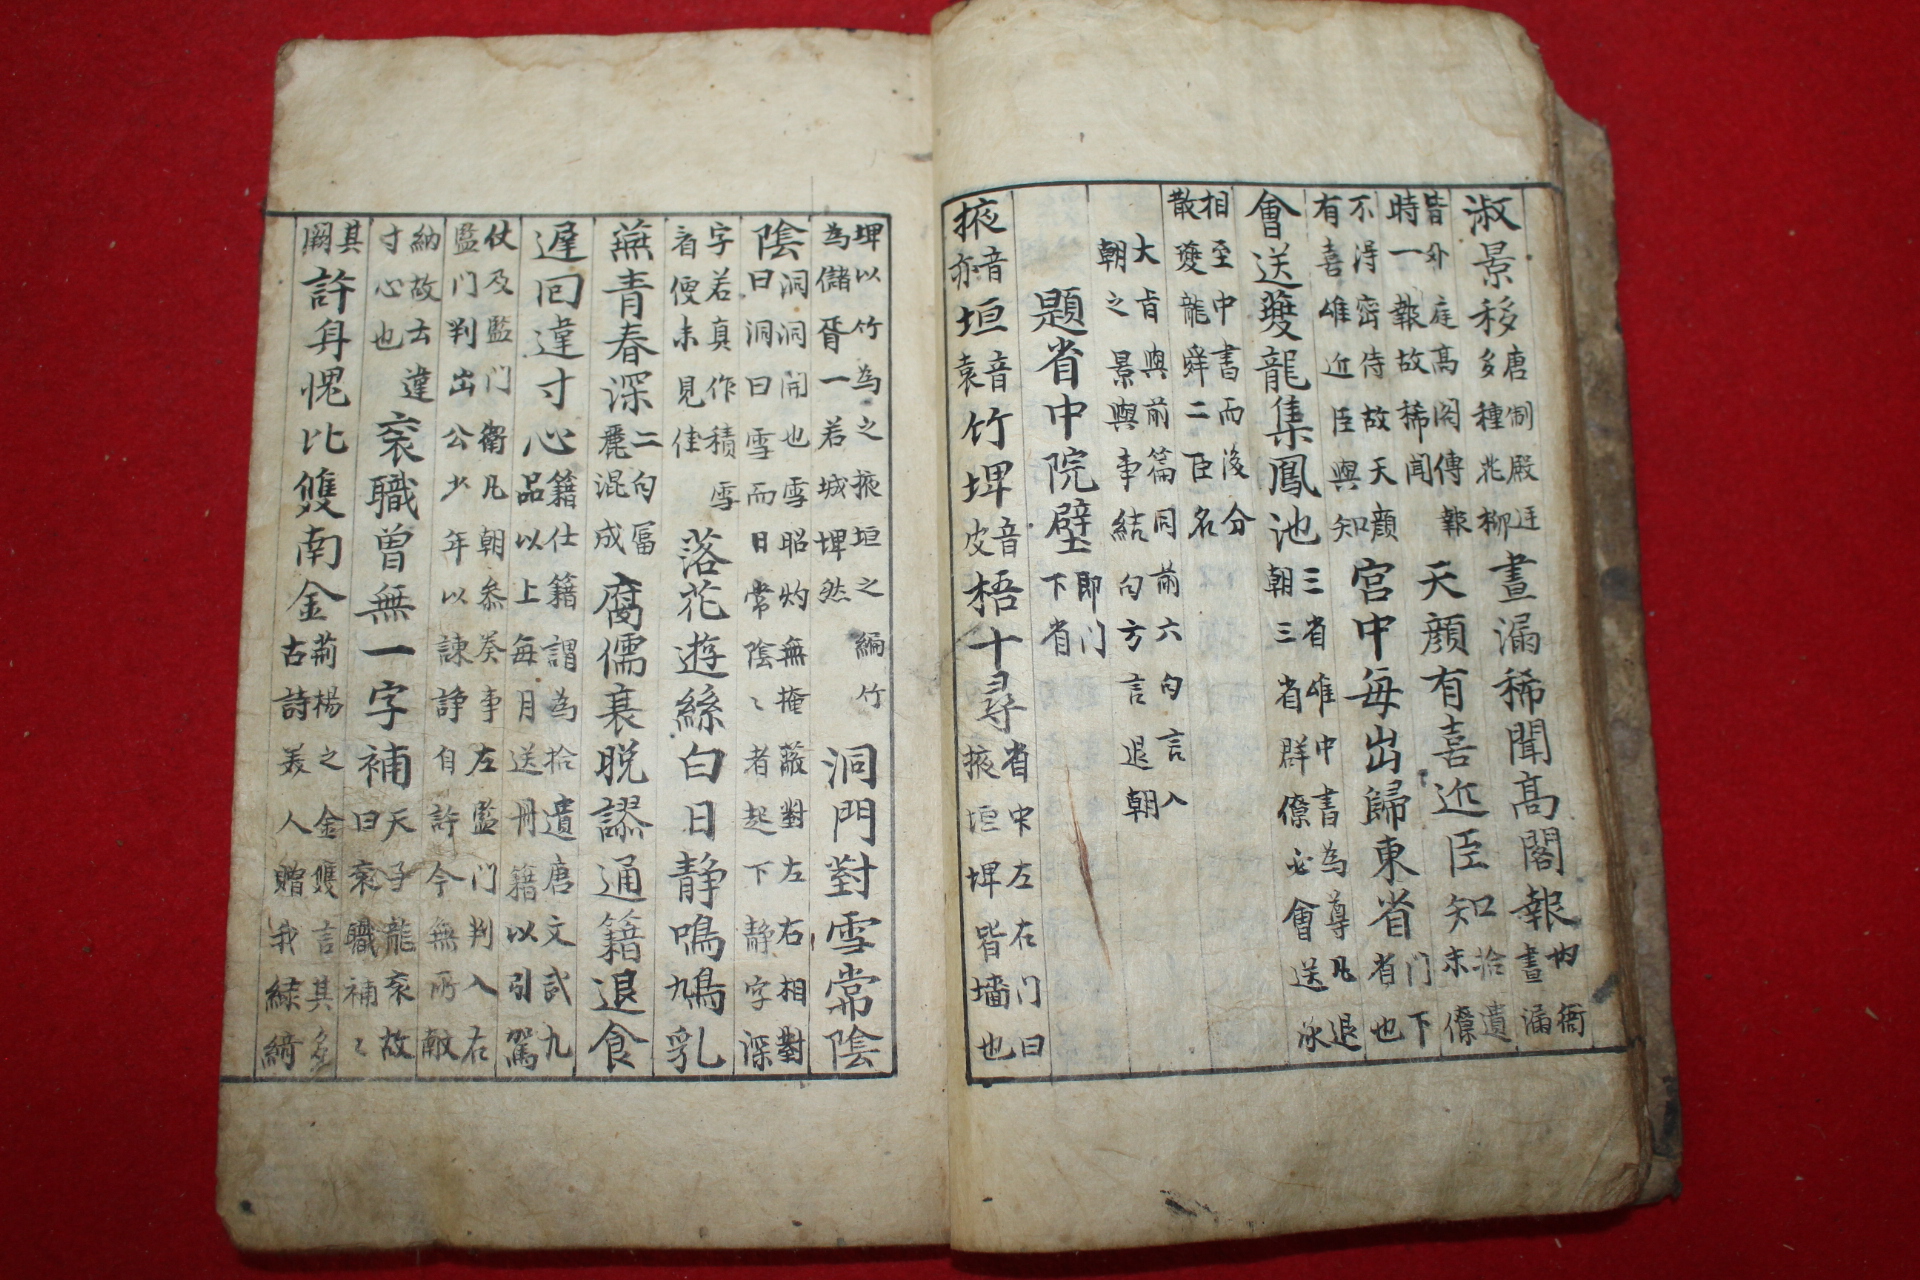 淑景移
唐制殿廷
多種花柳
晝漏稀聞高閣報
内衙
晝漏
皆外庭高閣傳報
時一報故稀聞
天顔有喜近臣知
拾遺
末僚
不淂密侍故天顔
有喜唯近臣與知
宮中每出歸東省
门下
省也
會送夔龍集鳳池
三省唯中書為尊凡退
朝三省群僚必會送泳
相至中書而後分
散夔龍舜二臣名
大㫖與前篇同前六句言入
朝之景與事結句方言退朝
題省中院壁
即门
下省
掖
音
亦
垣
音
袁
竹埤
音
皮
梧十尋
省中左右门曰
掖垣埤皆墻也
埤以竹為之掖垣之編竹
為儲胥一若城埤然
洞門對雪常陰
陰
洞洞開也雪昭灼無掩蔽對左右相對
曰洞洞曰雪而日常陰〻者起下静字深
字若真作積雪
看便未見佳
落花遊絲白日静鳴鳩乳
燕青春深
二句富
麗混成
腐儒衰脱謬通籍退食
遲回違寸心
籍仕籍謂為拾遺唐文武九
品以上每月送冊籍以引駕
仗及監门衛凡朝参奏事左監门判入右
監门判出公少年以諫諍自許今無所献
納故去違
寸心也
衮職曽無一字補
天子龍衮故
曰衮職補〻
其
闕
許身愧比雙南金
荊楊之金雙言其多
古詩美人贈我緑綺